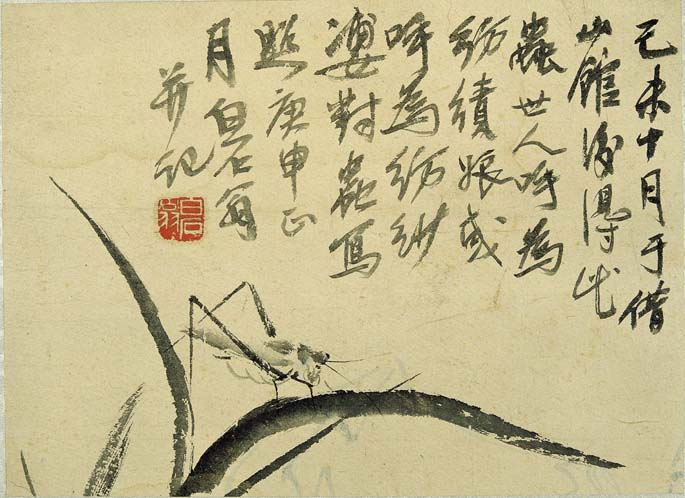 己未十月于借
山館後得此
蟲世人呼為
紡績娘或
呼為紡紗
婆對蟲寫
照庚申正
月白石翁
并記
白石翁